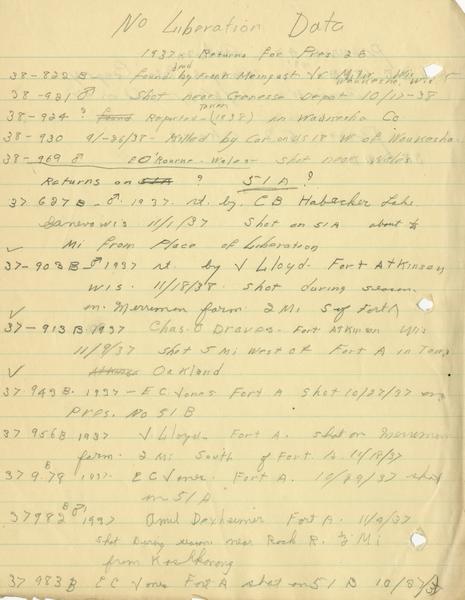 No Liberation Data
1937 Returns for Pres 2 B
38-822 B - found by Frank Meinpast Jr
Waukesha, Wis
38-921 ♂ Shot near Genessa Depot 10/17-38
38-924 ? found Reported taken (1938) in Waukesha Co
38-930 9/-26/38 - Killed by Car on US 18 W of Waukesha
38-969 ♂ EO Rourne - Wales - Shot near Wales
Returns on 51A ? 51A ?
37 687 B - ♂ 1937 rt. by CB Habacker Lake
Wis 11/1/37 Shot on 51A about ½
✓ Mi from Place of Liberation
37-903 B ♂ 1937 rt. by V Lloyd Fort Atkinson
Wis. 11/18/38 Shot during season
✓ on Merriman farm 2 Mi S of Fort A
37-913 B 1937 Chas. Draves - Fort Atkinson Wis
11/9/37 Shot 5 Mi West of Fort A in Town
✓ Oakland
37 949 B. 1937 - E C Jones Fort A Shot 10/27/37 on
Pres. No 51 B
37 956 B 1937 V Lloyd - Fort A. Shot on Merriman
farm - 2 Mi South of Fort A. 11/18/37
37 978 B 1937. E C Jones. Fort A. 10/29/37 shot
on 51 A
37982 B ♂ 1937 Amil Dexheimer Fort A. 11/9/37
Shot During season near Rock R. ½ Mi
from Koshkonong
37 983 B E C Jones Fort A shot on 51 B 10/27/37